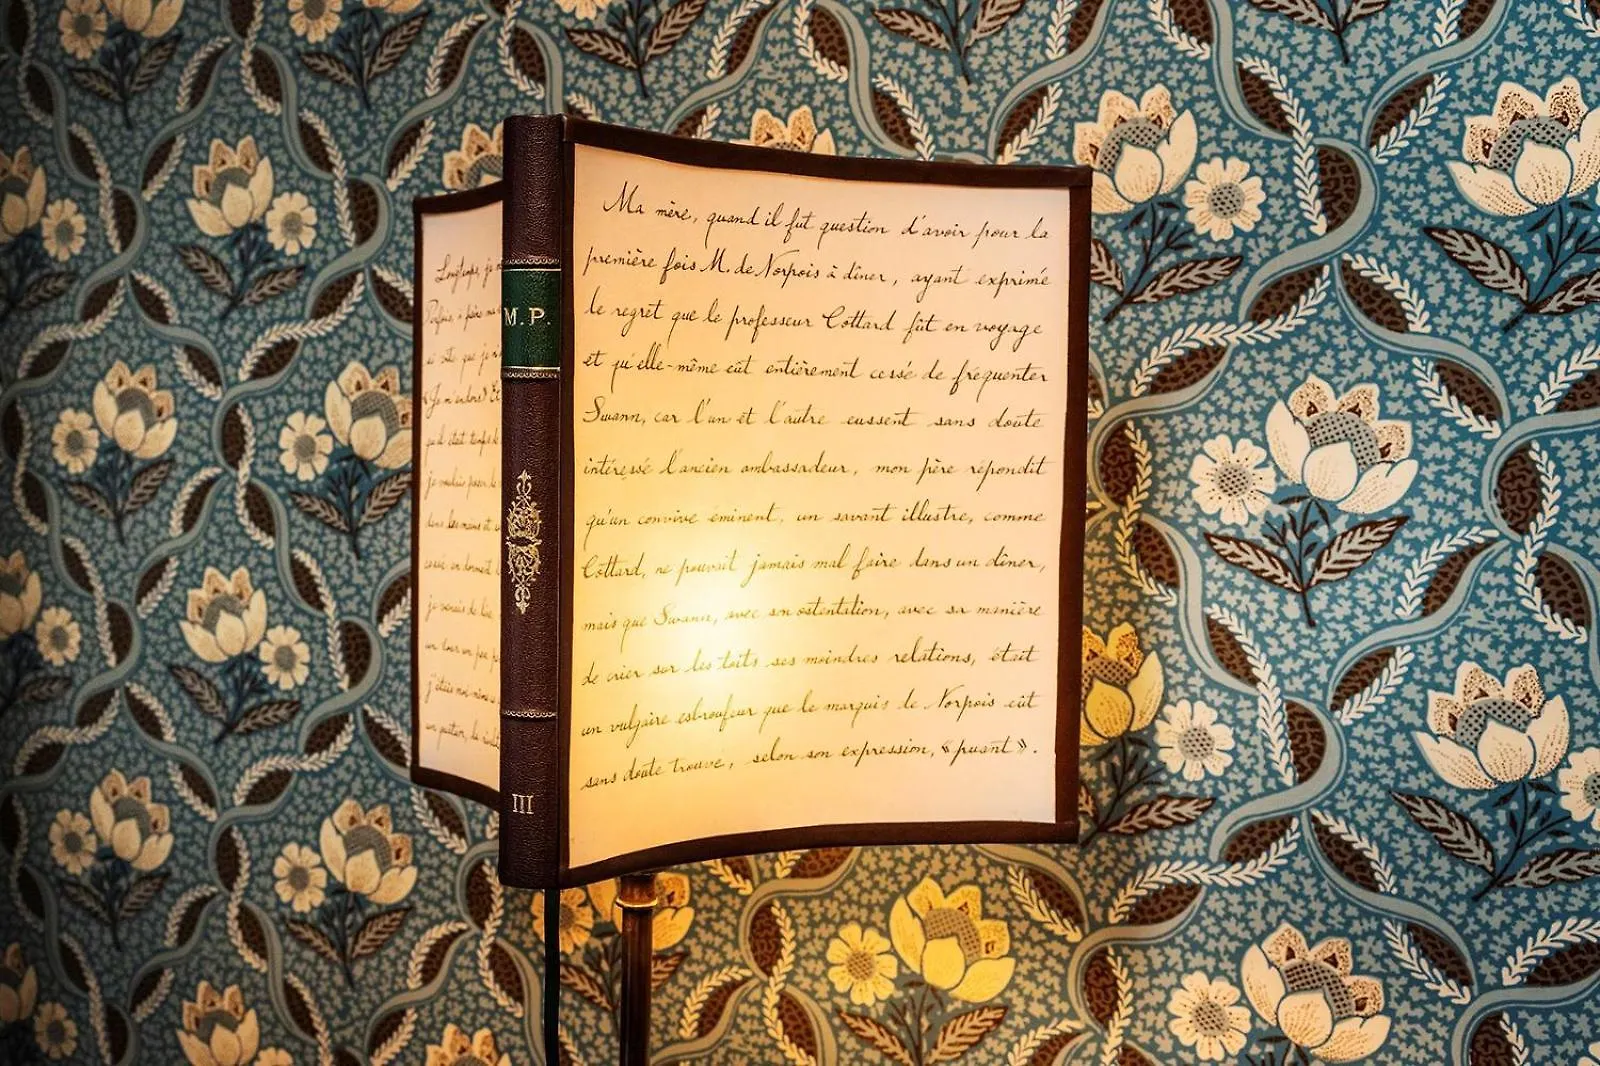 Longtemps, je m
Parfois, à peine ma
si vite, que je n'a
«Je m'endors» Et
qu'il était temps de
je voulais poser le
dans les mains et
cessé en dormant
je venais de lire,
un tour un peu p
j'étais moi-même
un quatuor, la rival
M.P.
III
Ma mère, quand il fut question d'avoir pour la
première fois M. de Norpois à dîner, ayant exprimé
le regret que le professeur Cottard fût en voyage
et qu'elle-même eût entièrement cessé de fréquenter
Swann, car l'un et l'autre eussent sans doute
intéressé l'ancien ambassadeur, mon père répondit
qu'un convive éminent, un savant illustre, comme
Cottard, ne pouvait jamais mal faire dans un dîner,
mais que Swann, avec son ostentation, avec sa manière
de crier sur les toits ses moindres relations, était
un vulgaire esbroufeur que le marquis de Norpois eût
sans doute trouvé, selon son expression, «puant».